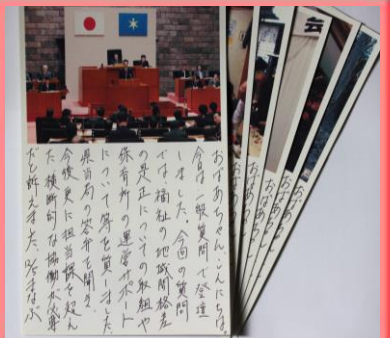 おばあちゃん、こんにちは。
今日は一般質問で登壇
しました。今回の質問
では福祉の地域間格差
の是正についての取組や
保育所の運営サポート
について等を質しました。
県当局の答弁を聞き、
今後更に担当課を超え
た横断的な協働が必要
だと訴えました。12/5 まなぶ
おばあちゃん
おばあちゃん
おばあちゃん
おばあちゃん
会